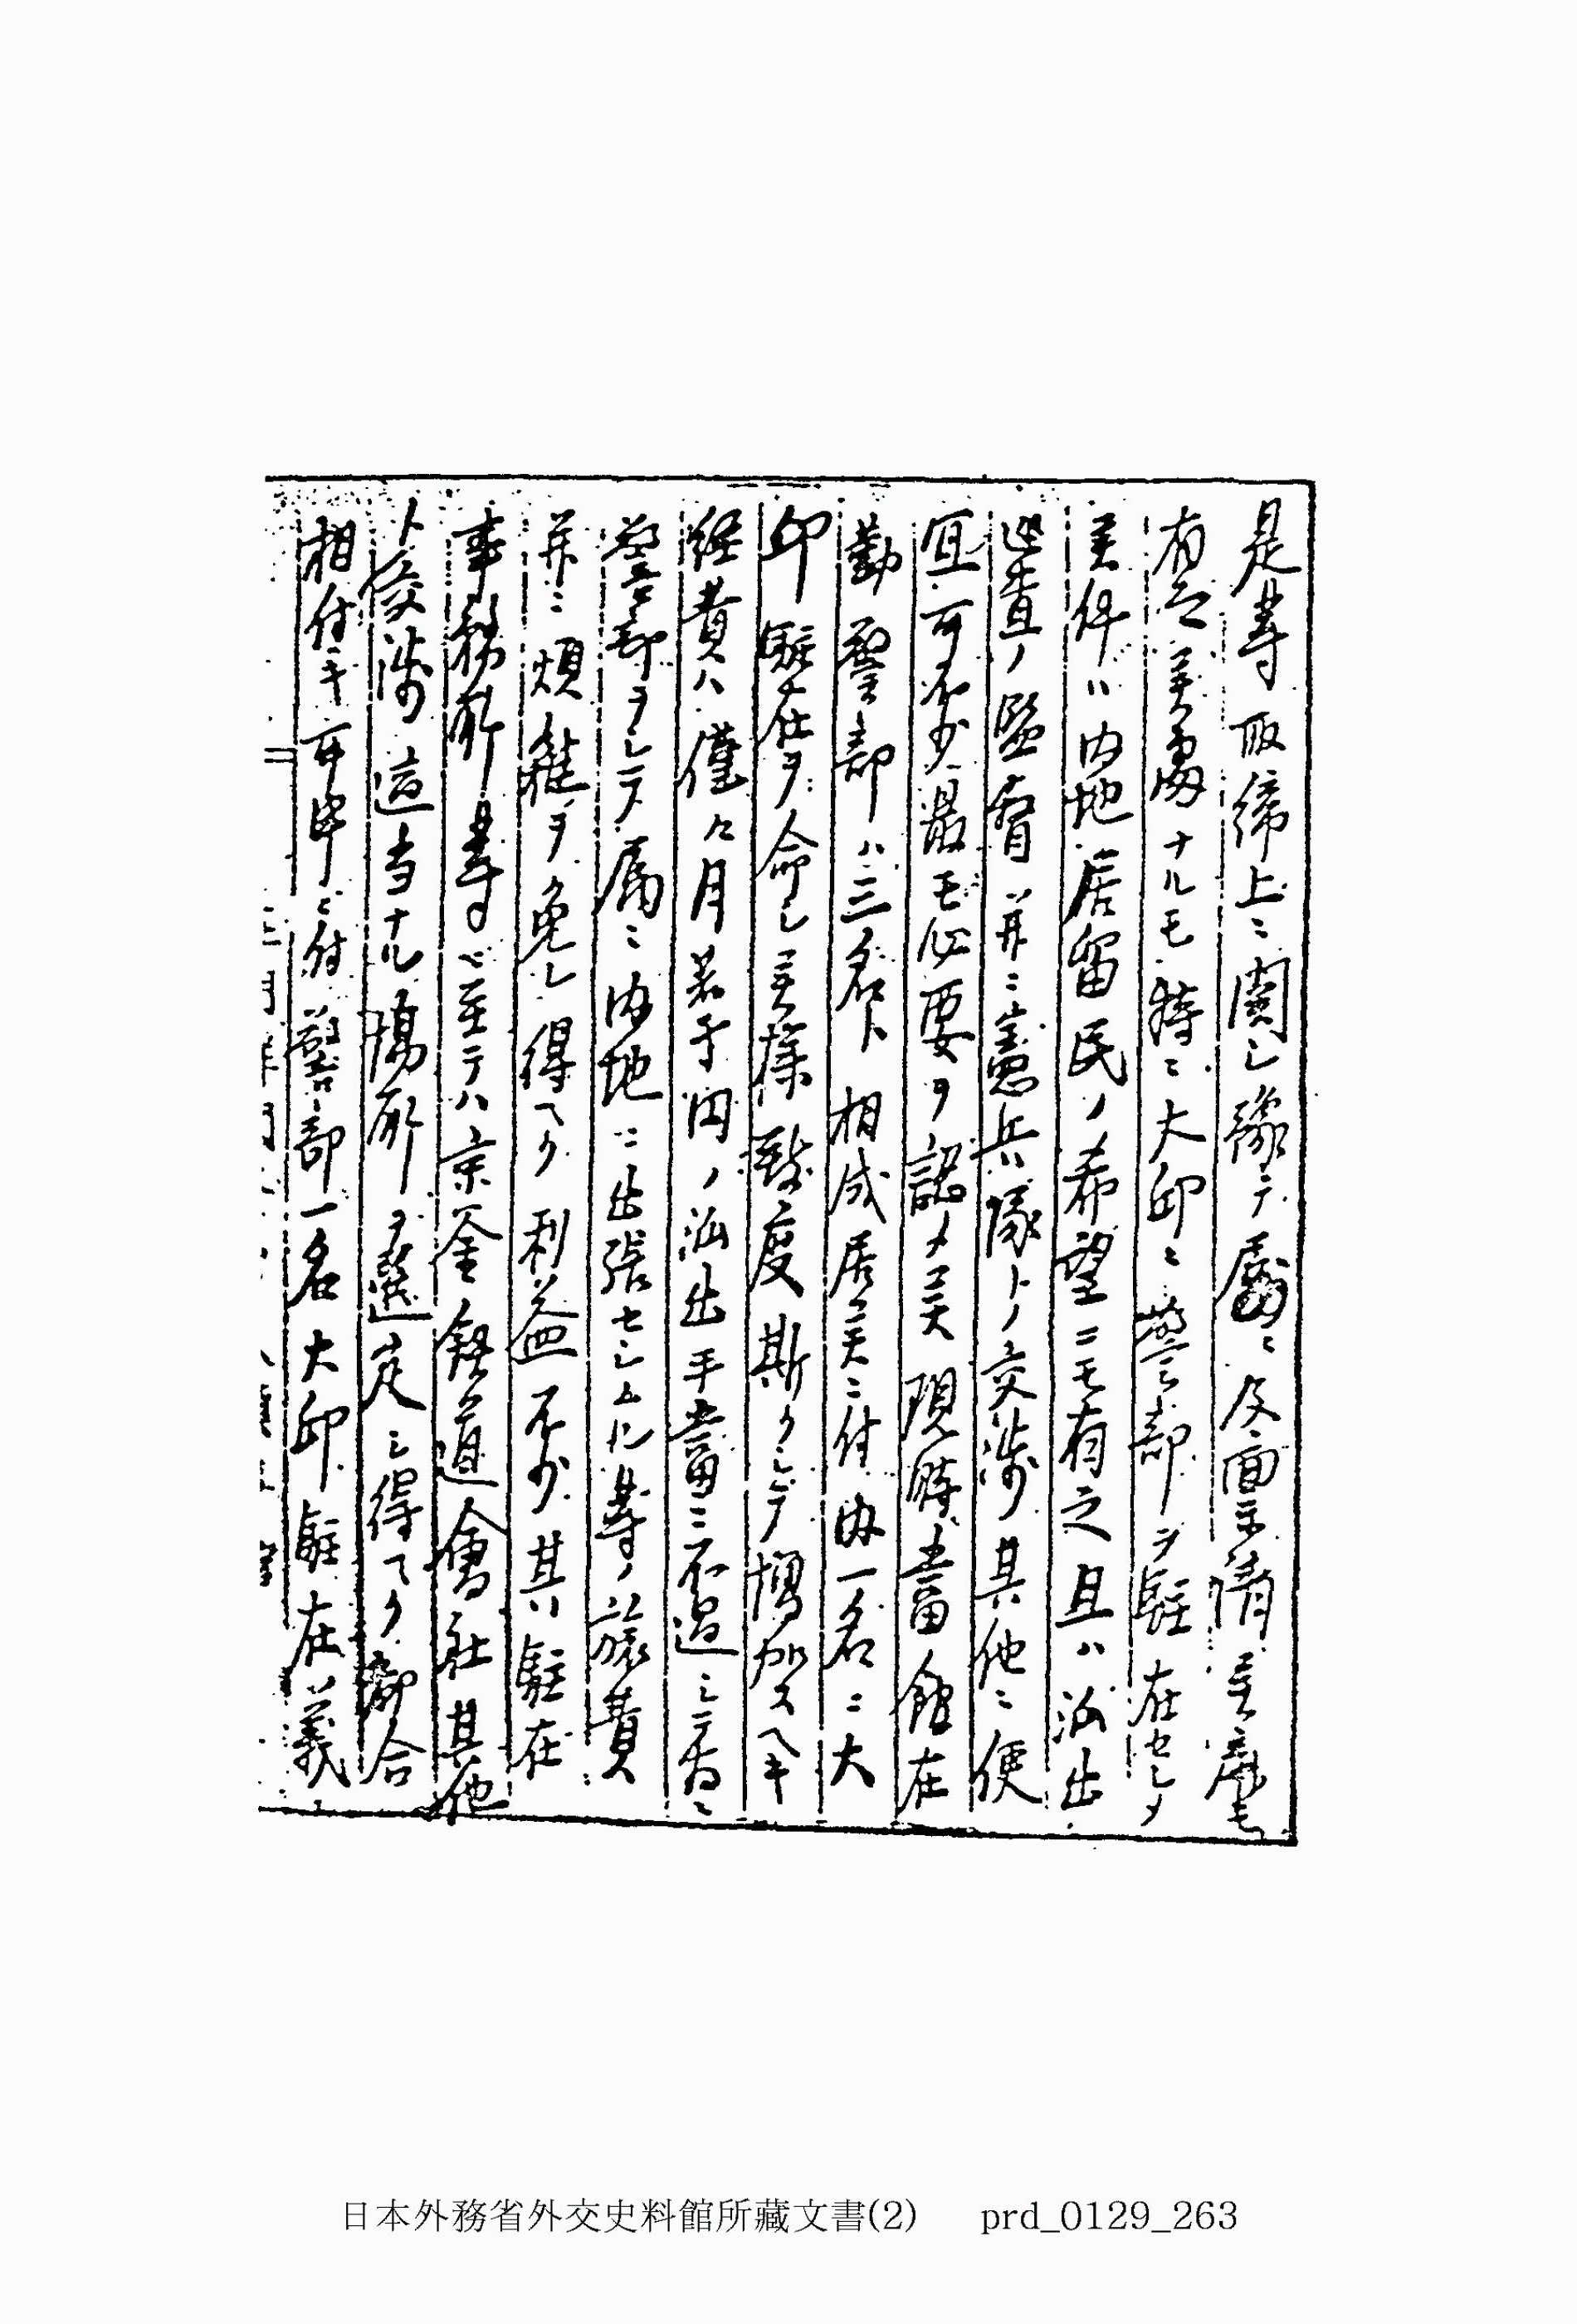 是等取締上ニ関シ豫テ屢々及面禀請候處モ
有之候場合ナルモ特ニ大邱ニ警部ヲ駐在セシメ
候件ハ内地居留民ノ希望ニモ有之且ハ派出
巡査ノ監督并ニ憲兵隊トノ交渉其他ニ便
宜可不少最モ必要ヲ認メ候現時當館在
勤警部ハ三名ト相成居候ニ付内一名ニ大
邱駐在ヲ命シ候様致度斯クシテ増加スヘキ
経費ハ僅々月若干円ノ派出手當ニ不過シテ為ニ
警部ヲシテ屢々内地ニ出張セシムル等ノ旅費
并ニ煩雑ヲ免レ得ヘク利益不少其駐在
事務所等ニ至テハ京釜鉄道會社其他
ト交渉適当ナル場所ヲ選定シ得ヘク都合
相付キ可申ニ付警部一名大邱駐在ノ義